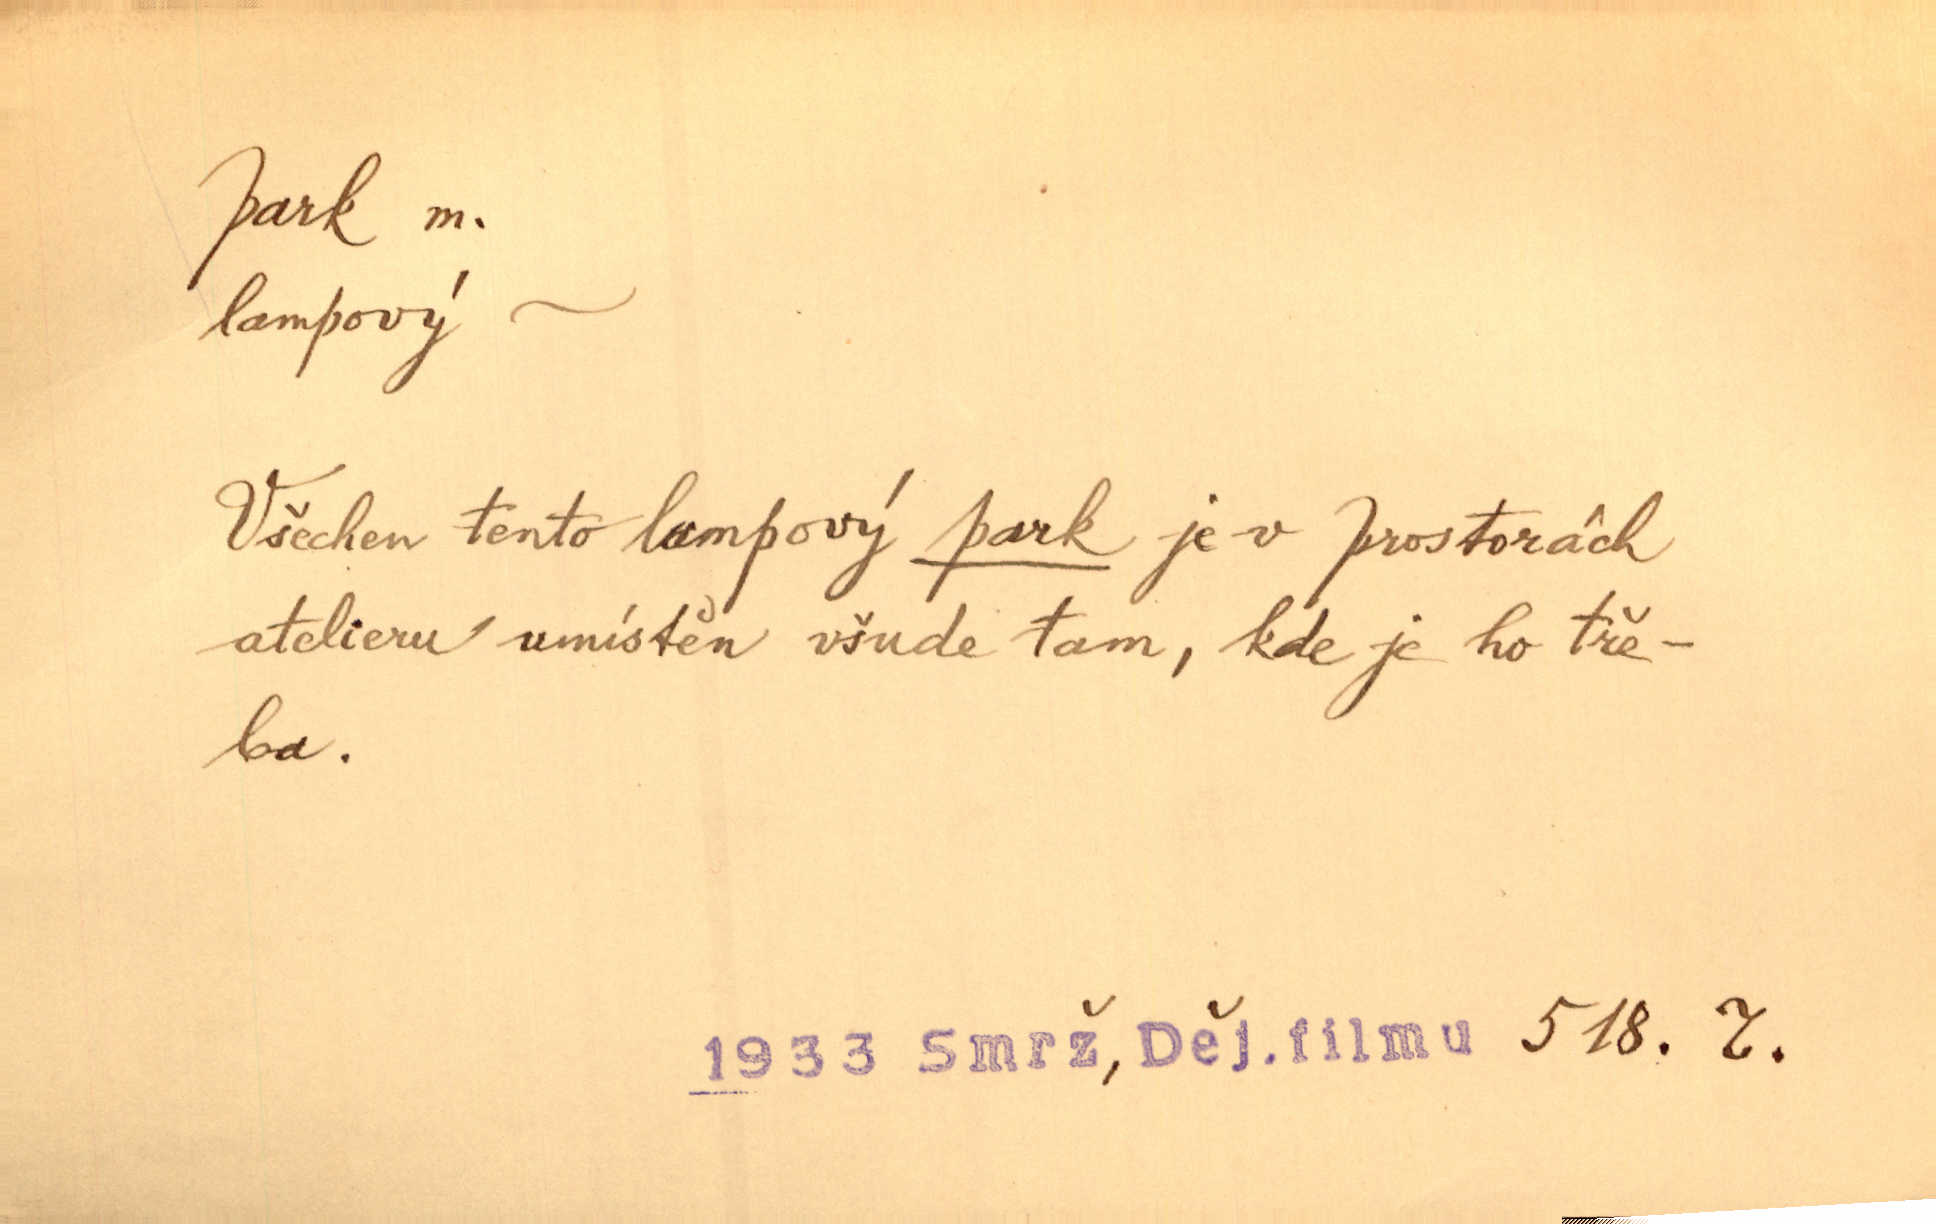 park m.
lampový ~
Všechen tento lampový park je v prostorách
atelieru umístěn všude tam, kde je ho tře-
ba.
1933 Smrž, Děj. filmu 518. Z.